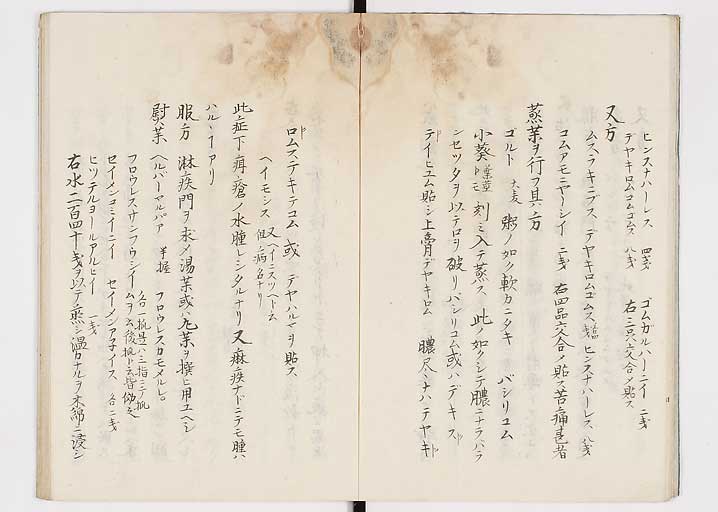 ヒンスナハーレス 四戔 ゴムガルハーニイ 二戔
テヤキロムコムゴムス 八戔 右三品交合メ貼ス
又方
ムスラキニプス テヤキロムゴムス ヒンスナハーレス 八戔
コムアモニヤーシイ 二戔 右四品交合メ貼ス苦痛甚者
蒸葉ヲ行フ其方
ゴルト 大麦 粥ノ如ク軟カニタキ バシリコム
小葵 刻ミ入テ蒸ス 此ノ如クシテ膿ニナラバラ
ンセツタヲ以テ口ヲ破リバシリコム或ハデキス
テイヒユム貼シ上膏デヤキロム 膿尽ナハテヤキ
ロムステキテコム或 デヤハルマヲ貼ス
ヘイモシス 又ヘイニスツヘトス
但シ病名ナリ
此症下疳瘡ノ水腫レシタルナリ又痳疾ナドニテモ腫ハ
ハルヽイアリ
服方 淋疾門ヲ求メ湯薬或ハ丸葉ヲ撰ヒ用ユヘシ
熨薬 ヘルバーマルバア 半握 フロウレスカモメルレ
フロウレスサンフウシイ 各一抓是ハ三指ニテ抓
ムヲ云後抓ト云皆傚之
セイメンコミイニイ セイメンアネイス 各二戔
ヒツテルヨールアルヒイ 一戔
右水二百四十戔ヲ以テ煎シ温カナルヲ木綿ニ浸シ